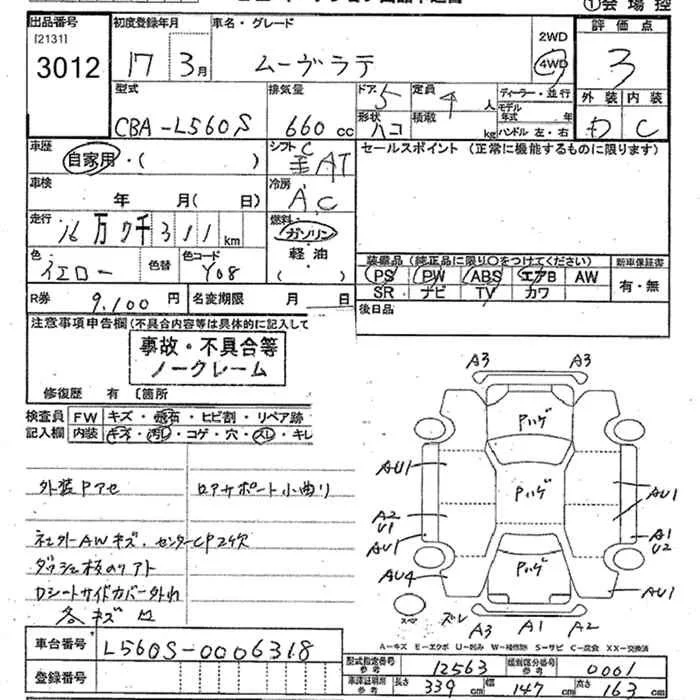 ①会場控
出品番号 初度登録年月 車名・グレード 評価点
[2131]
3012 17 3月 ムーヴラテ 2WD 4WD 3
型式 排気量 ドア 5 定員 4人 ディーラー・並行 外装 内装
CBA-L560S 660cc 形状 ハコ 積載 kg モデル年式 年 ハンドル 左・右 D C
車歴 シフト セールスポイント (正常に機能するものに限ります)
自家用・( ) AT
車検 冷房
年 月( 日) A.C
走行 燃料
16万7千311km ガソリン
色 色替 色コード 軽油
イエロー Y08 ( )
装備品 (純正品に限り○をつけてください) 新車保証書
PS PW ABS エアB AW 有・無
SR ナビ TV カワ
R券 9,100円 名変期限 月 日 後日品
注意事項申告欄(不具合内容等は具体的に記入して
事故・不具合等
ノークレーム
修復歴 有 〔箇所
検査員 FW キズ・飛石・ヒビ割・リペア跡
記入欄 内装 キズ・汚レ・コゲ・穴・スレ・キレ
外装Pアセ ロアサポート小曲り
社外AWキズ. センターCP2欠
ダッシュ板のリアト
Dシートサイドカバー外れ
各キズ
A3 A3
Pハゲ
AU1 Pハゲ AU1
A2 U1 A1 U2
AU1
AU4 Pハゲ AU1
スペ ズレ A3 A1 A2
車台番号 L560S-0006318
登録番号
A-キズ E-エクボ U-凹み W-補修跡 S-サビ C-腐食 XX-交換済
型式指定番号 参考 12563 類別区分番号 参考 0001
車検証明寸 参考 長さ 339cm 幅 147cm 高さ 163cm